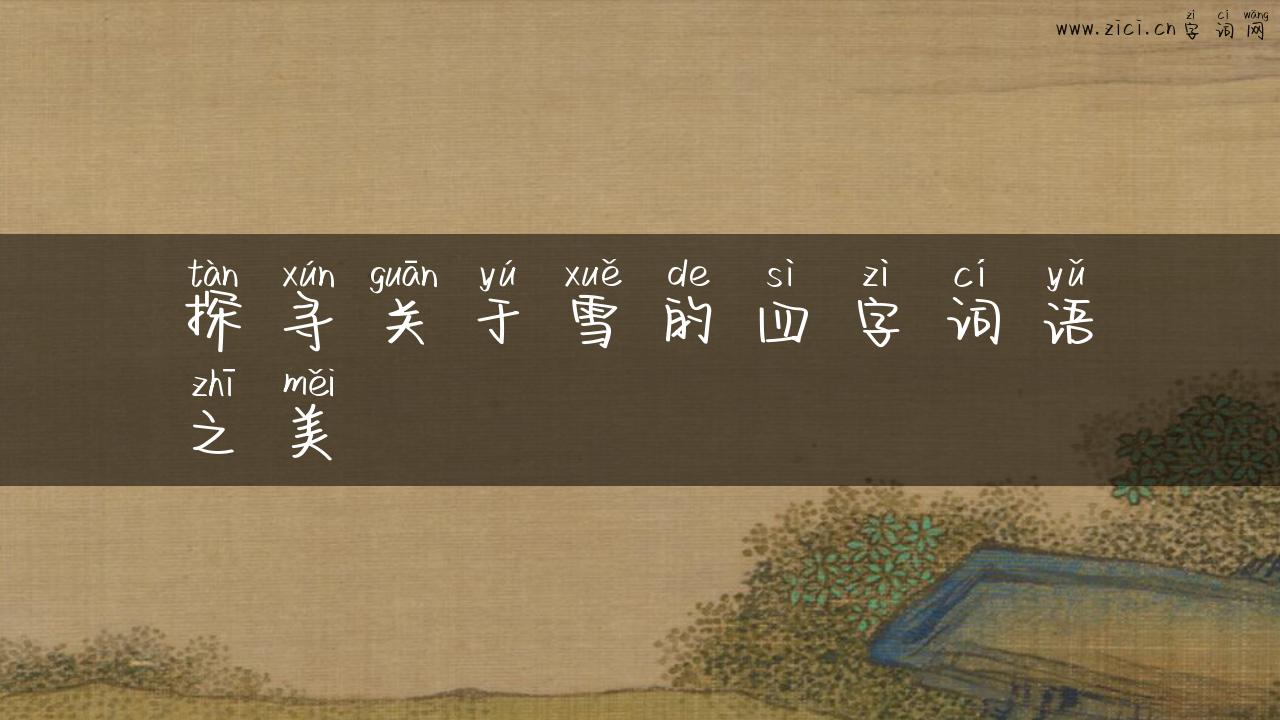 www.zici.cn zì cí wǎng
字词网
tàn xún guān yú xuě de sì zì cí yǔ
探寻关于雪的四字词语
zhī měi
之美